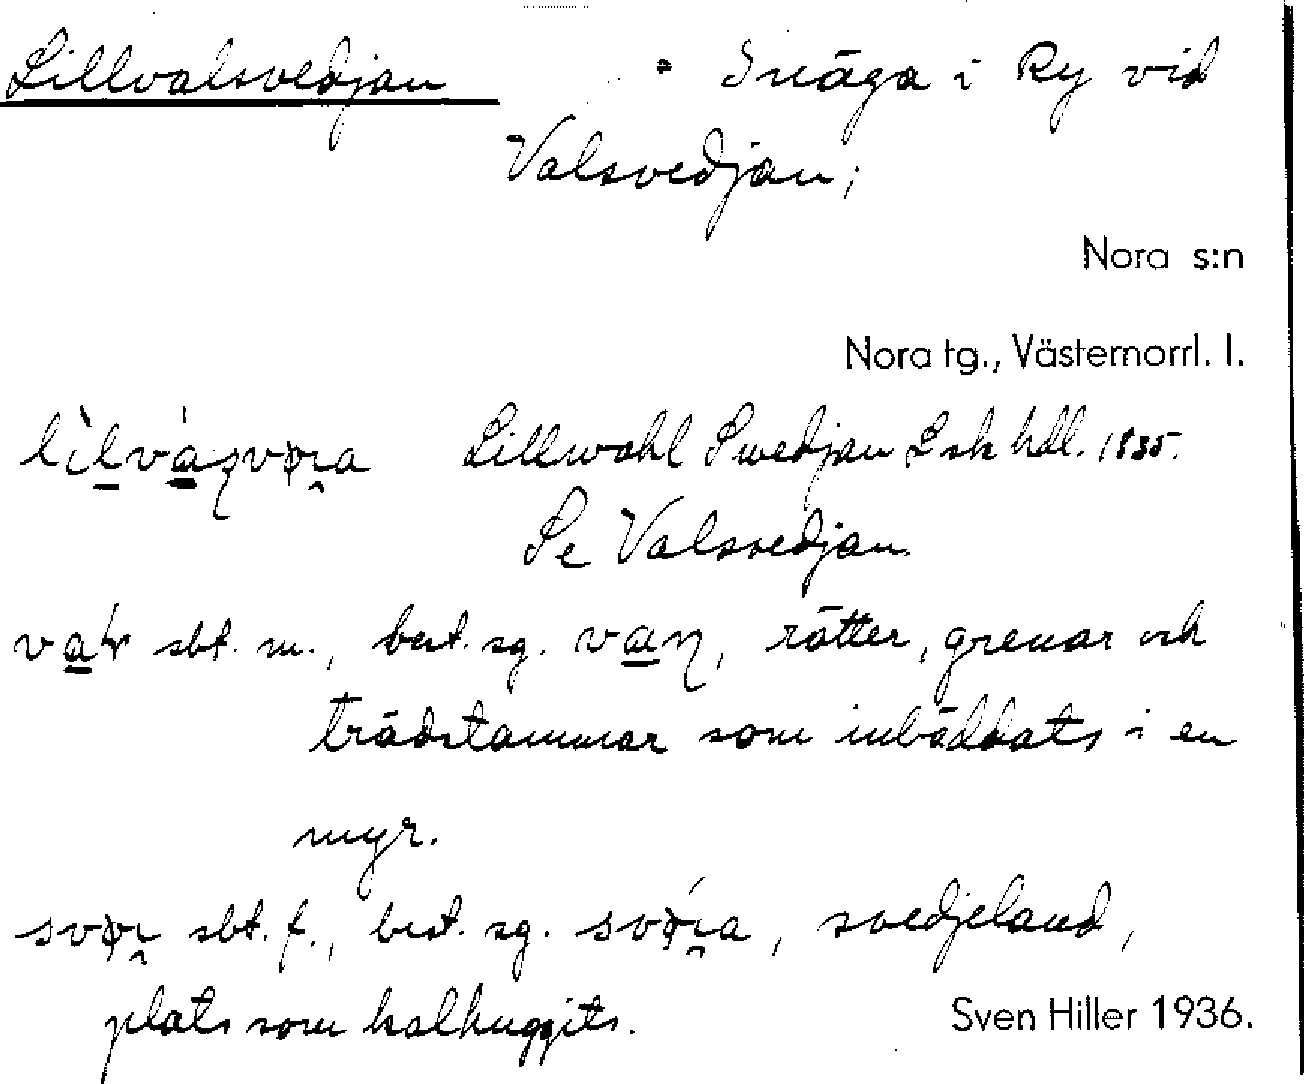 Lillvalsvedjan • Snäga i Ry vid
Valsvedjan;
Nora s:n
Nora tg., Västernorrl. l.
Lillwahl Swedjan Lsk hdl. 1835.
Se Valsvedjan
sbt. m., best. sg. rötter, grenar och
trädstammar som inbäddats i en
myr.
sbt. f., best. sg. svedjeland,
plats som kalhuggits.
Sven Hiller 1936.